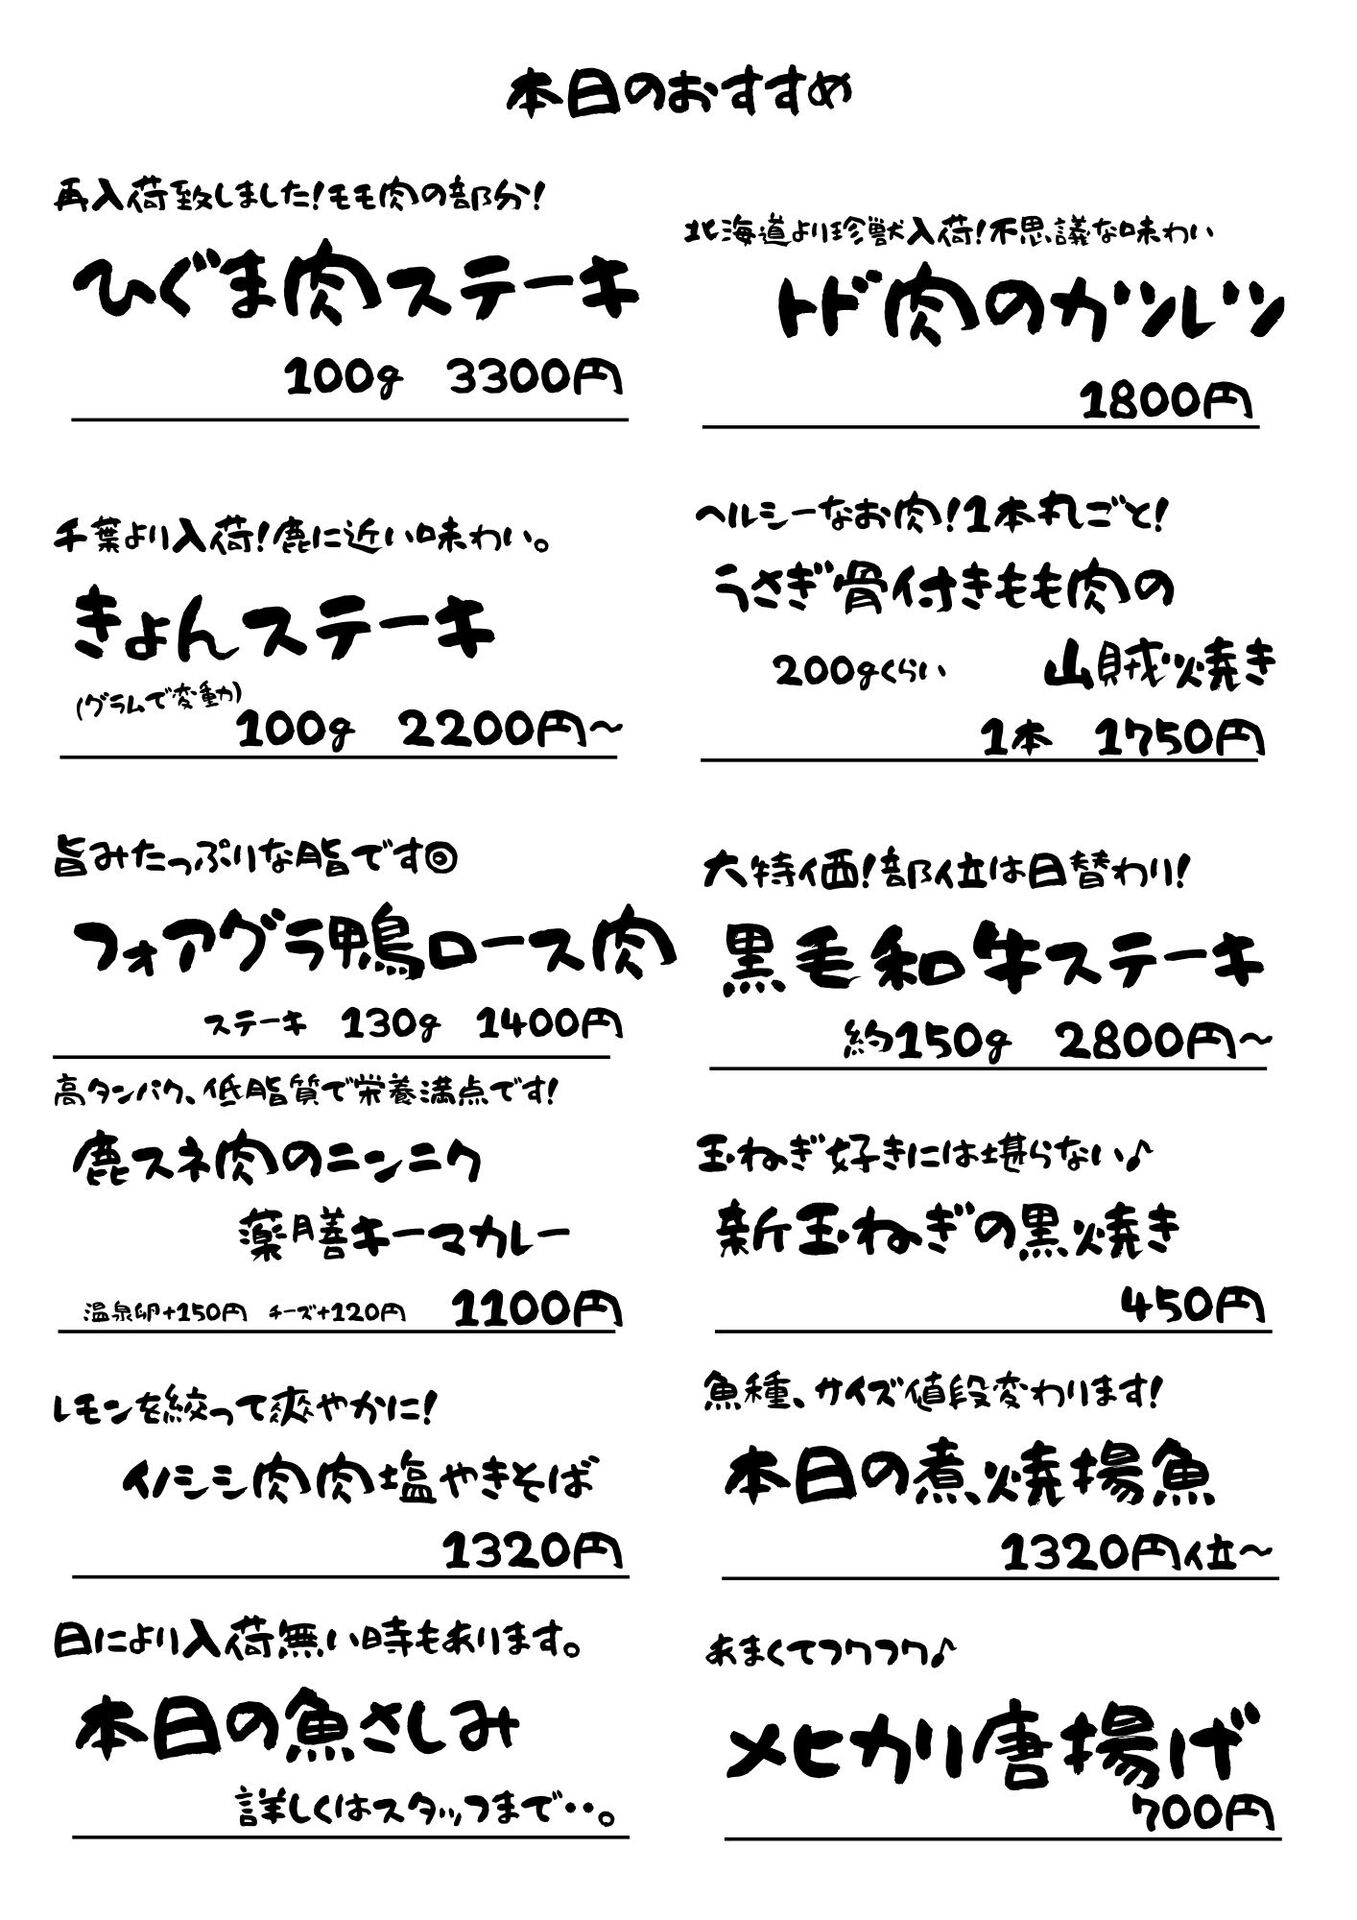 本日のおすすめ
再入荷致しました!モモ肉の部分!
ひぐま肉ステーキ
100g 3300円
北海道より珍獣入荷!不思議な味わい
トド肉のカツレツ
1800円
千葉より入荷!鹿に近い味わい。
きょんステーキ
(グラムで変動)
100g 2200円～
ヘルシーなお肉!1本丸ごと!
うさぎ骨付きもも肉の
200gくらい 山賊焼き
1本 1750円
旨みたっぷりな脂です◎
フォアグラ鴨ロース肉
ステーキ 130g 1400円
大特価!部位は日替わり!
黒毛和牛ステーキ
約150g 2800円～
高タンパク、低脂質で栄養満点です!
鹿スネ肉のニンニク
薬膳キーマカレー
温泉卵+150円 チーズ+120円 1100円
玉ねぎ好きには堪らない♪
新玉ねぎの黒焼き
450円
レモンを絞って爽やかに!
イノシシ肉肉塩やきそば
1320円
魚種、サイズ値段変わります!
本日の煮焼揚魚
1320円位～
日により入荷無い時もあります。
本日の魚さしみ
詳しくはスタッフまで・・。
あまくてフワフワ♪
メヒカリ唐揚げ
700円